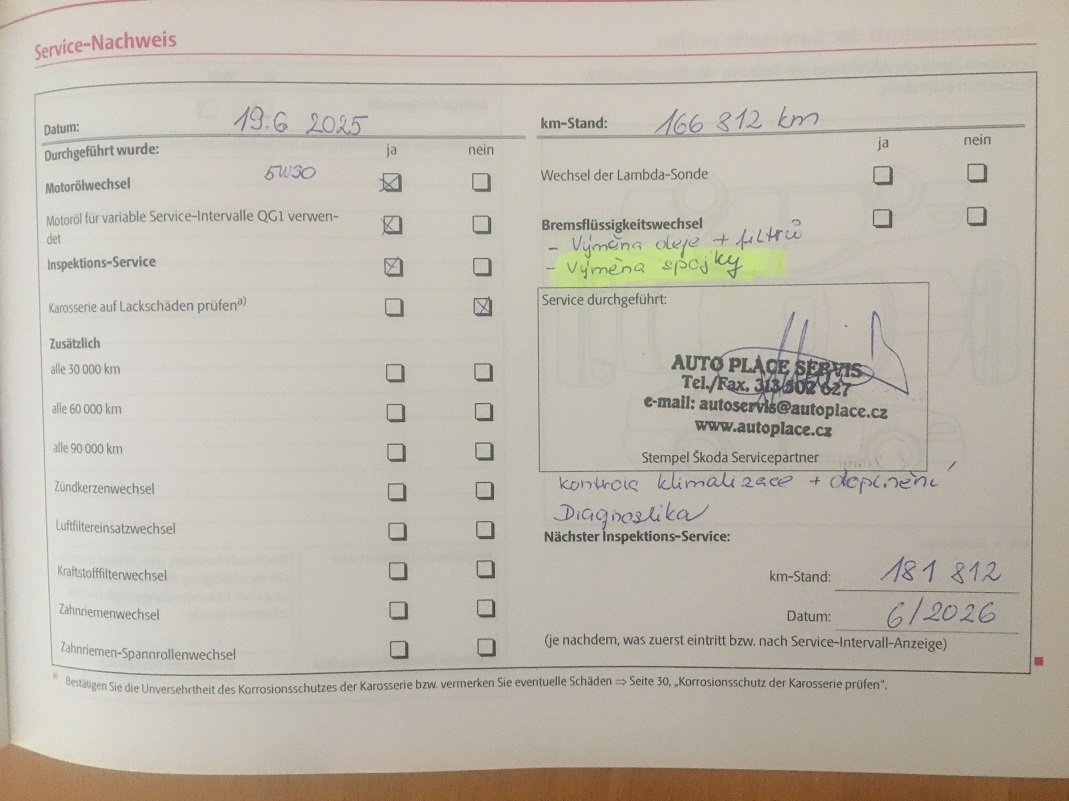 Service-Nachweis
Datum: 19.6 2025
Durchgeführt wurde: ja nein
Motorölwechsel 5W30
Motoröl für variable Service-Intervalle QG1 verwen-
det
Inspektions-Service
Karosserie auf Lackschäden prüfen a)
Zusätzlich
alle 30 000 km
alle 60 000 km
alle 90 000 km
Zündkerzenwechsel
Luftfiltereinsatzwechsel
Kraftstofffilterwechsel
Zahnriemenwechsel
Zahnriemen-Spannrollenwechsel
km-Stand: 166 812 km
ja nein
Wechsel der Lambda-Sonde
Bremsflüssigkeitswechsel
- Výměna oleje + filtrů
- Výměna spojky
Service durchgeführt:
AUTO PLACE SERVIS
Tel./Fax. 313 502 627
e-mail: autoservis@autoplace.cz
www.autoplace.cz
Stempel Škoda Servicepartner
kontrola klimatizace + doplnění,
Diagnostika
Nächster Inspektions-Service:
km-Stand: 181 812
Datum: 6/2026
(je nachdem, was zuerst eintritt bzw. nach Service-Intervall-Anzeige)
a) Bestätigen Sie die Unversehrtheit des Korrosionsschutzes der Karosserie bzw. vermerken Sie eventuelle Schäden ⇒ Seite 30, „Korrosionsschutz der Karosserie prüfen“.